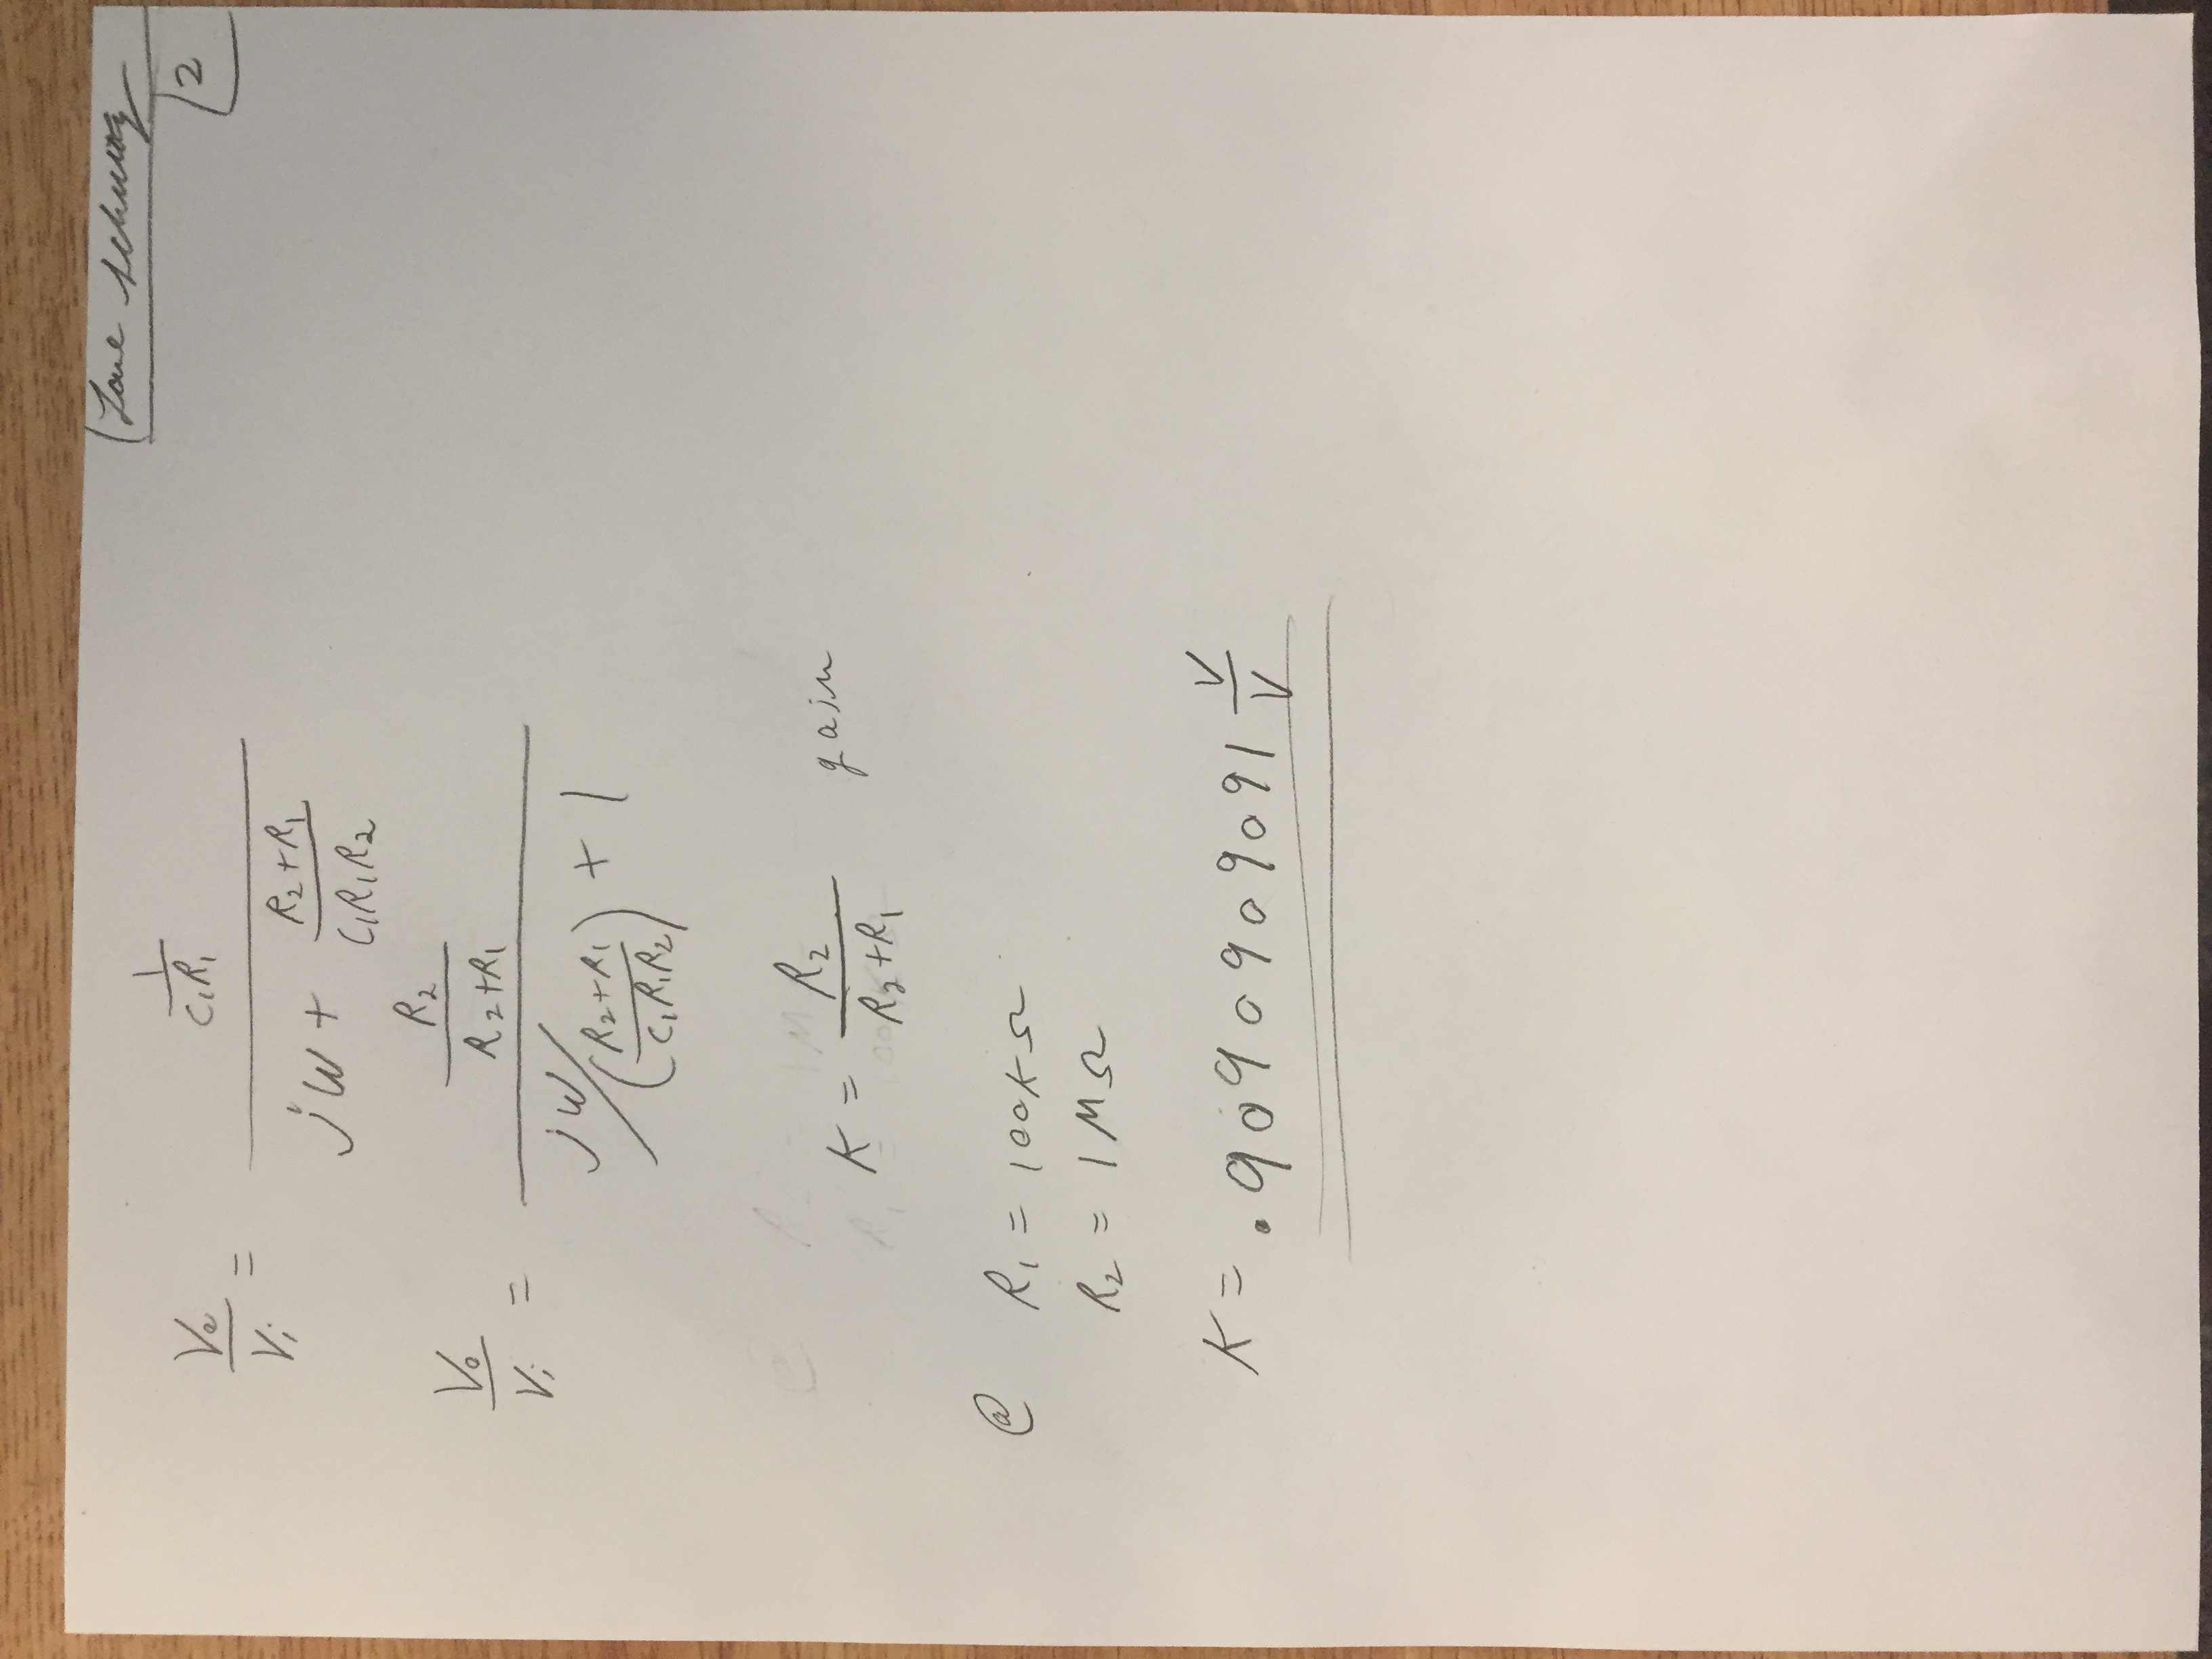 2
Vo/Vi = (1/(C1R1)) / (jω + (R2+R1)/(C1R1R2))
Vo/Vi = (R2/(R2+R1)) / (jω/((R2+R1)/(C1R1R2)) + 1)
K = R2/(R2+R1) gain
@ R1 = 100KΩ
R2 = 1MΩ
K = .9090909091 V/V